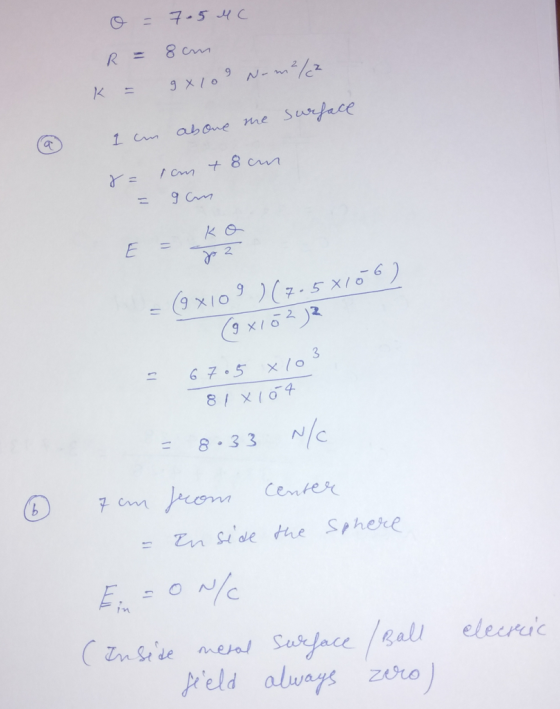 Q = 7.5 μC
R = 8 cm
K = 9×10⁹ N-m²/c²
(a) 1 cm above the surface
r = 1cm + 8 cm
= 9 cm
E = KQ/r²
= (9×10⁹)(7.5×10⁻⁶)/(9×10⁻²)²
= 67.5 ×10³/81×10⁻⁴
= 8.33 N/C
(b) 7 cm from center
= Inside the sphere
E_in = 0 N/C
(Inside metal surface/Ball electric
field always zero)